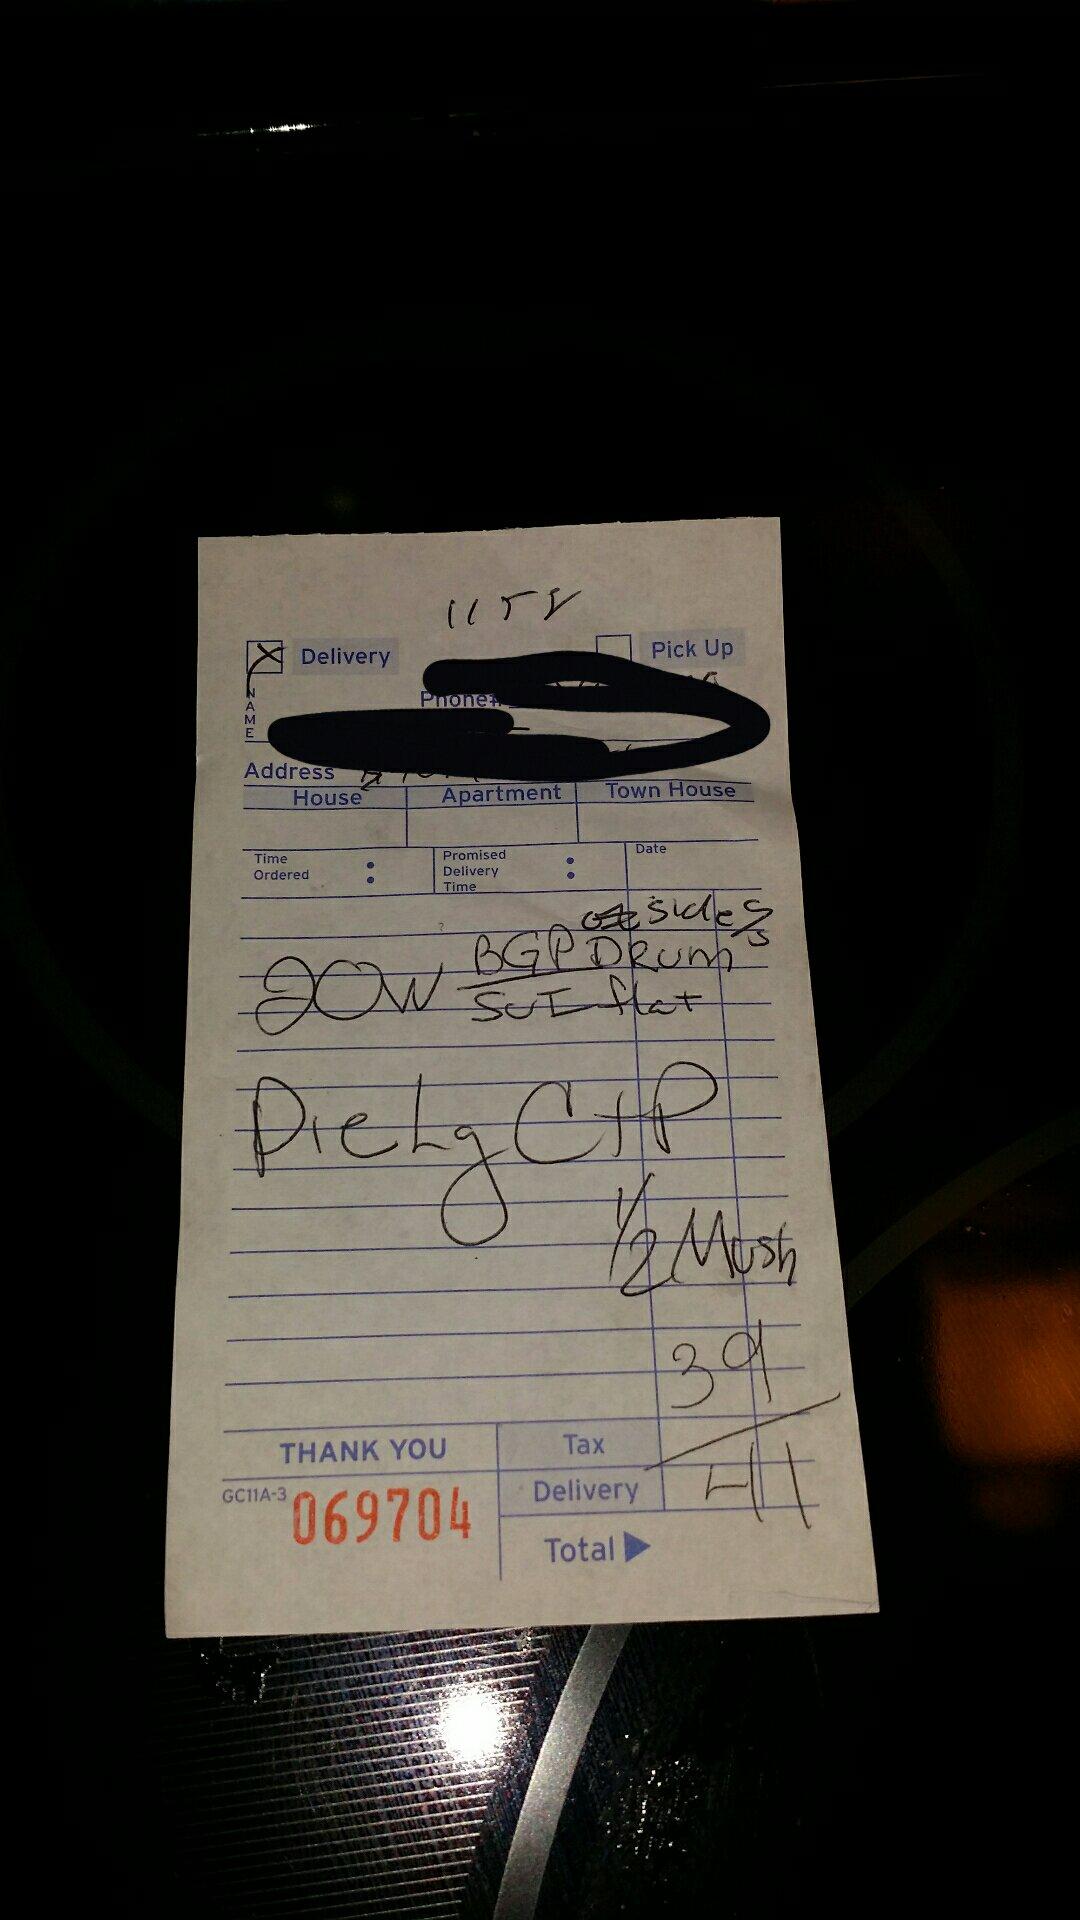 1158
Delivery
Pick Up
Phone#
NAME
Address
House Apartment Town House
Time Ordered : Promised Delivery Time : Date
side
20W BGP Drum
Flat
Pie Lg C+P
1/2 Mush
39
THANK YOU Tax
41
GC11A-3 069704 Delivery
Total